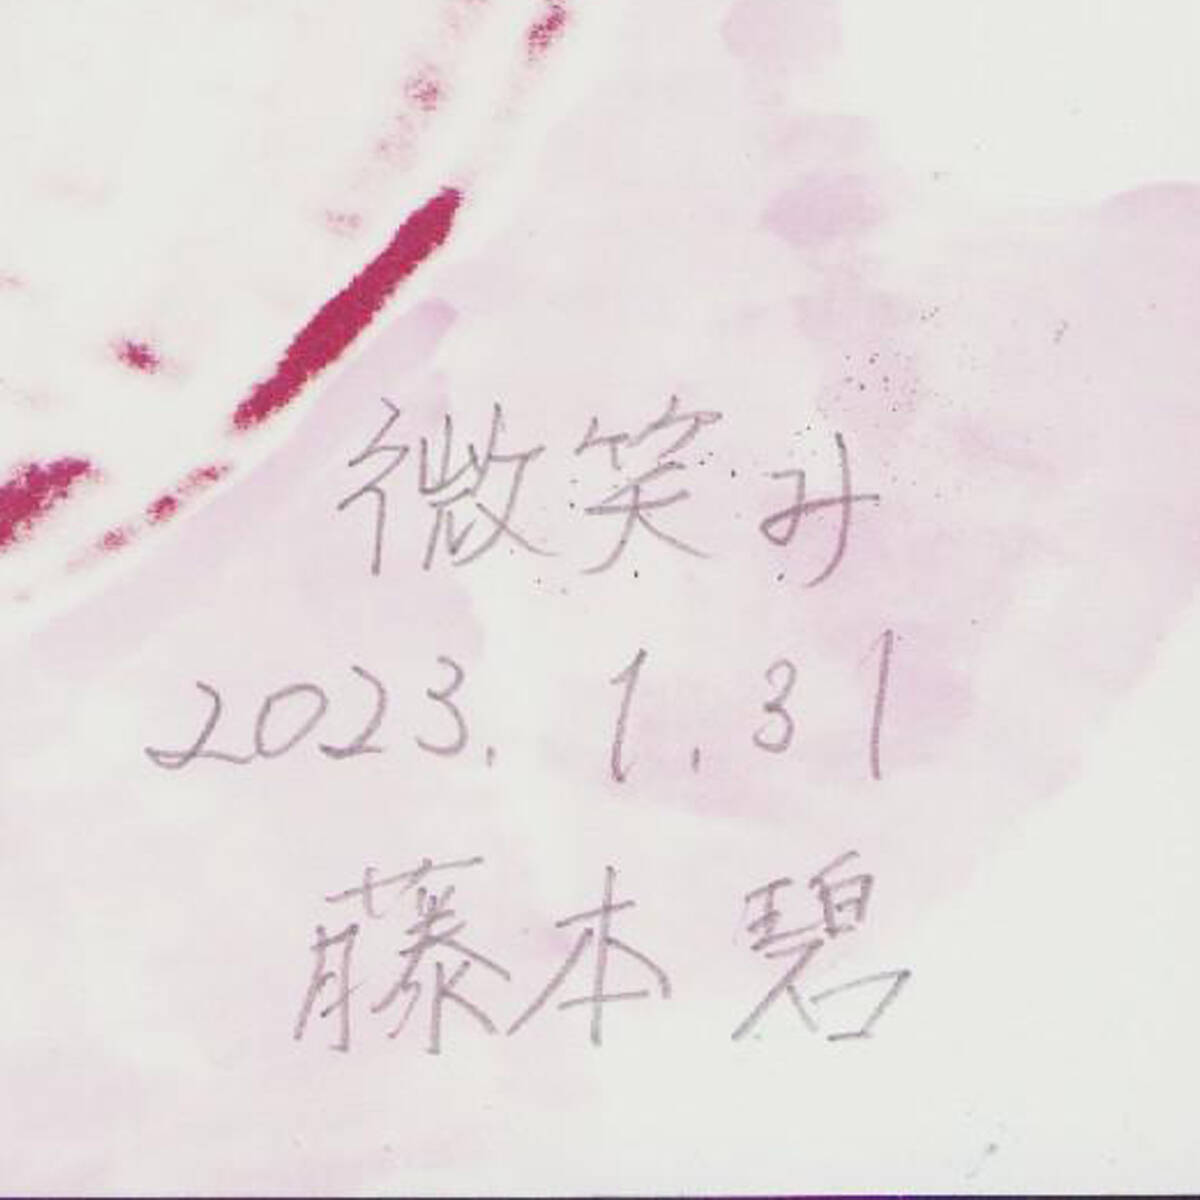 微笑み
2023. 1. 31
藤本碧